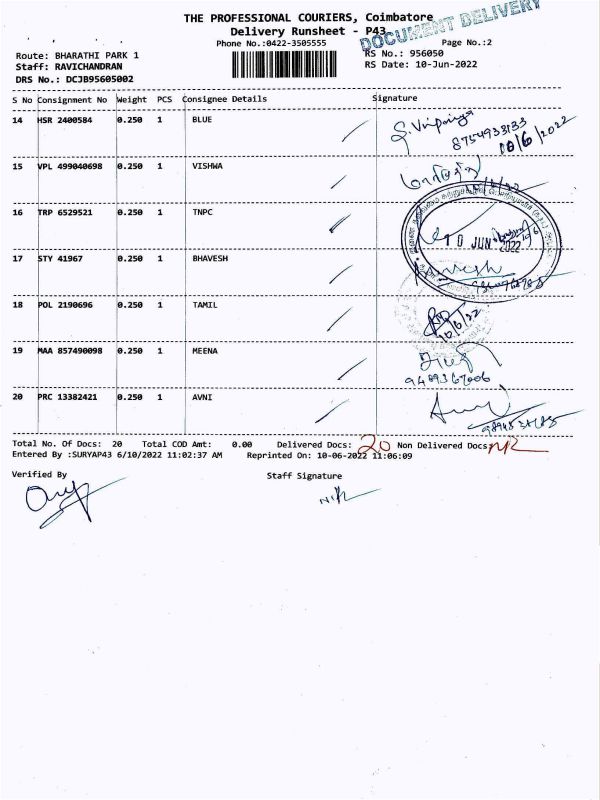 THE PROFESSIONAL COURIERS, Coimbatore
Delivery Runsheet - P43
DOCUMENT DELIVERY
Phone No.:0422-3505555
Page No.:2
Route: BHARATHI PARK 1
RS No.: 956050
Staff: RAVICHANDRAN
RS Date: 10-Jun-2022
DRS No.: DCJB95605002
S No Consignment No Weight PCS Consignee Details Signature
14 HSR 2400584 0.250 1 BLUE
8754933133
10/6/2022
15 VPL 499040698 0.250 1 VISHWA
16 TRP 6529521 0.250 1 TNPC
10 JUN 2022
17 STY 41967 0.250 1 BHAVESH
18 POL 2190696 0.250 1 TAMIL
10/6/22
19 MAA 857490098 0.250 1 MEENA
9489367006
20 PRC 13382421 0.250 1 AVNI
Total No. Of Docs: 20 Total COD Amt: 0.00 Delivered Docs: 20 Non Delivered Docs:
Entered By :SURYAP43 6/10/2022 11:02:37 AM Reprinted On: 10-06-2022 11:06:09
Verified By Staff Signature